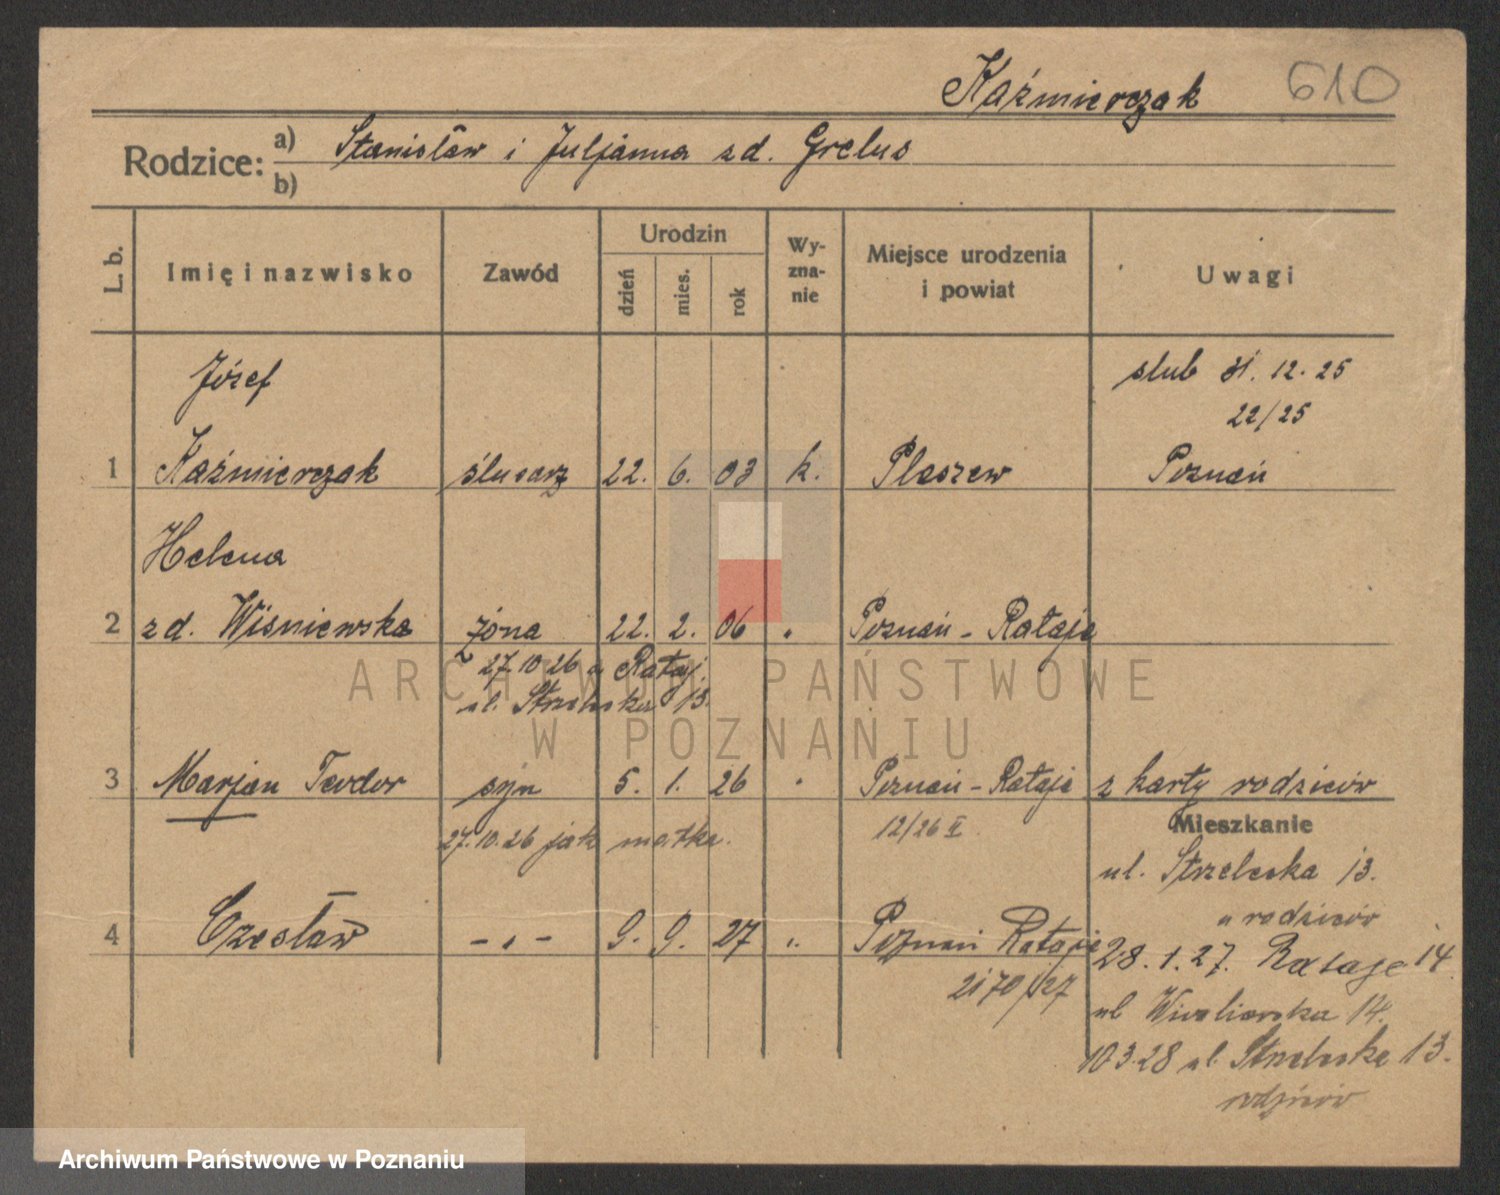 Kaźmierczak 610
Rodzice: a) Stanisław i Juljanna zd. Grelus
b)
L. b. Imię i nazwisko Zawód Urodzin dzień mies. rok Wy-zna-nie Miejsce urodzenia i powiat Uwagi
Józef ślub 31. 12. 25
22/25
1 Kaźmierczak ślusarz 22. 6. 03 k. Pleszew Poznań
Helena
2 zd. Wiśniewska żona 22. 2. 06 " Poznań - Rataje
27.10.26 Rataj.
ul. Strzelecka 13.
3 Marjan Teodor syn 5. 1. 26 " Poznań - Rataje z karty rodziców
27.10.26 jak matka. 12/26 II Mieszkanie
ul. Strzelecka 13.
u rodziców
4 Czesław - " - 9. 9. 27 " Poznań Rataje
28. 1. 27. Rataje 14
2170/27 ul 14.
10.3.28 ul. Strzelecka 13.
rodziców
ARCHIWUM PAŃSTWOWE
W POZNANIU
Archiwum Państwowe w Poznaniu